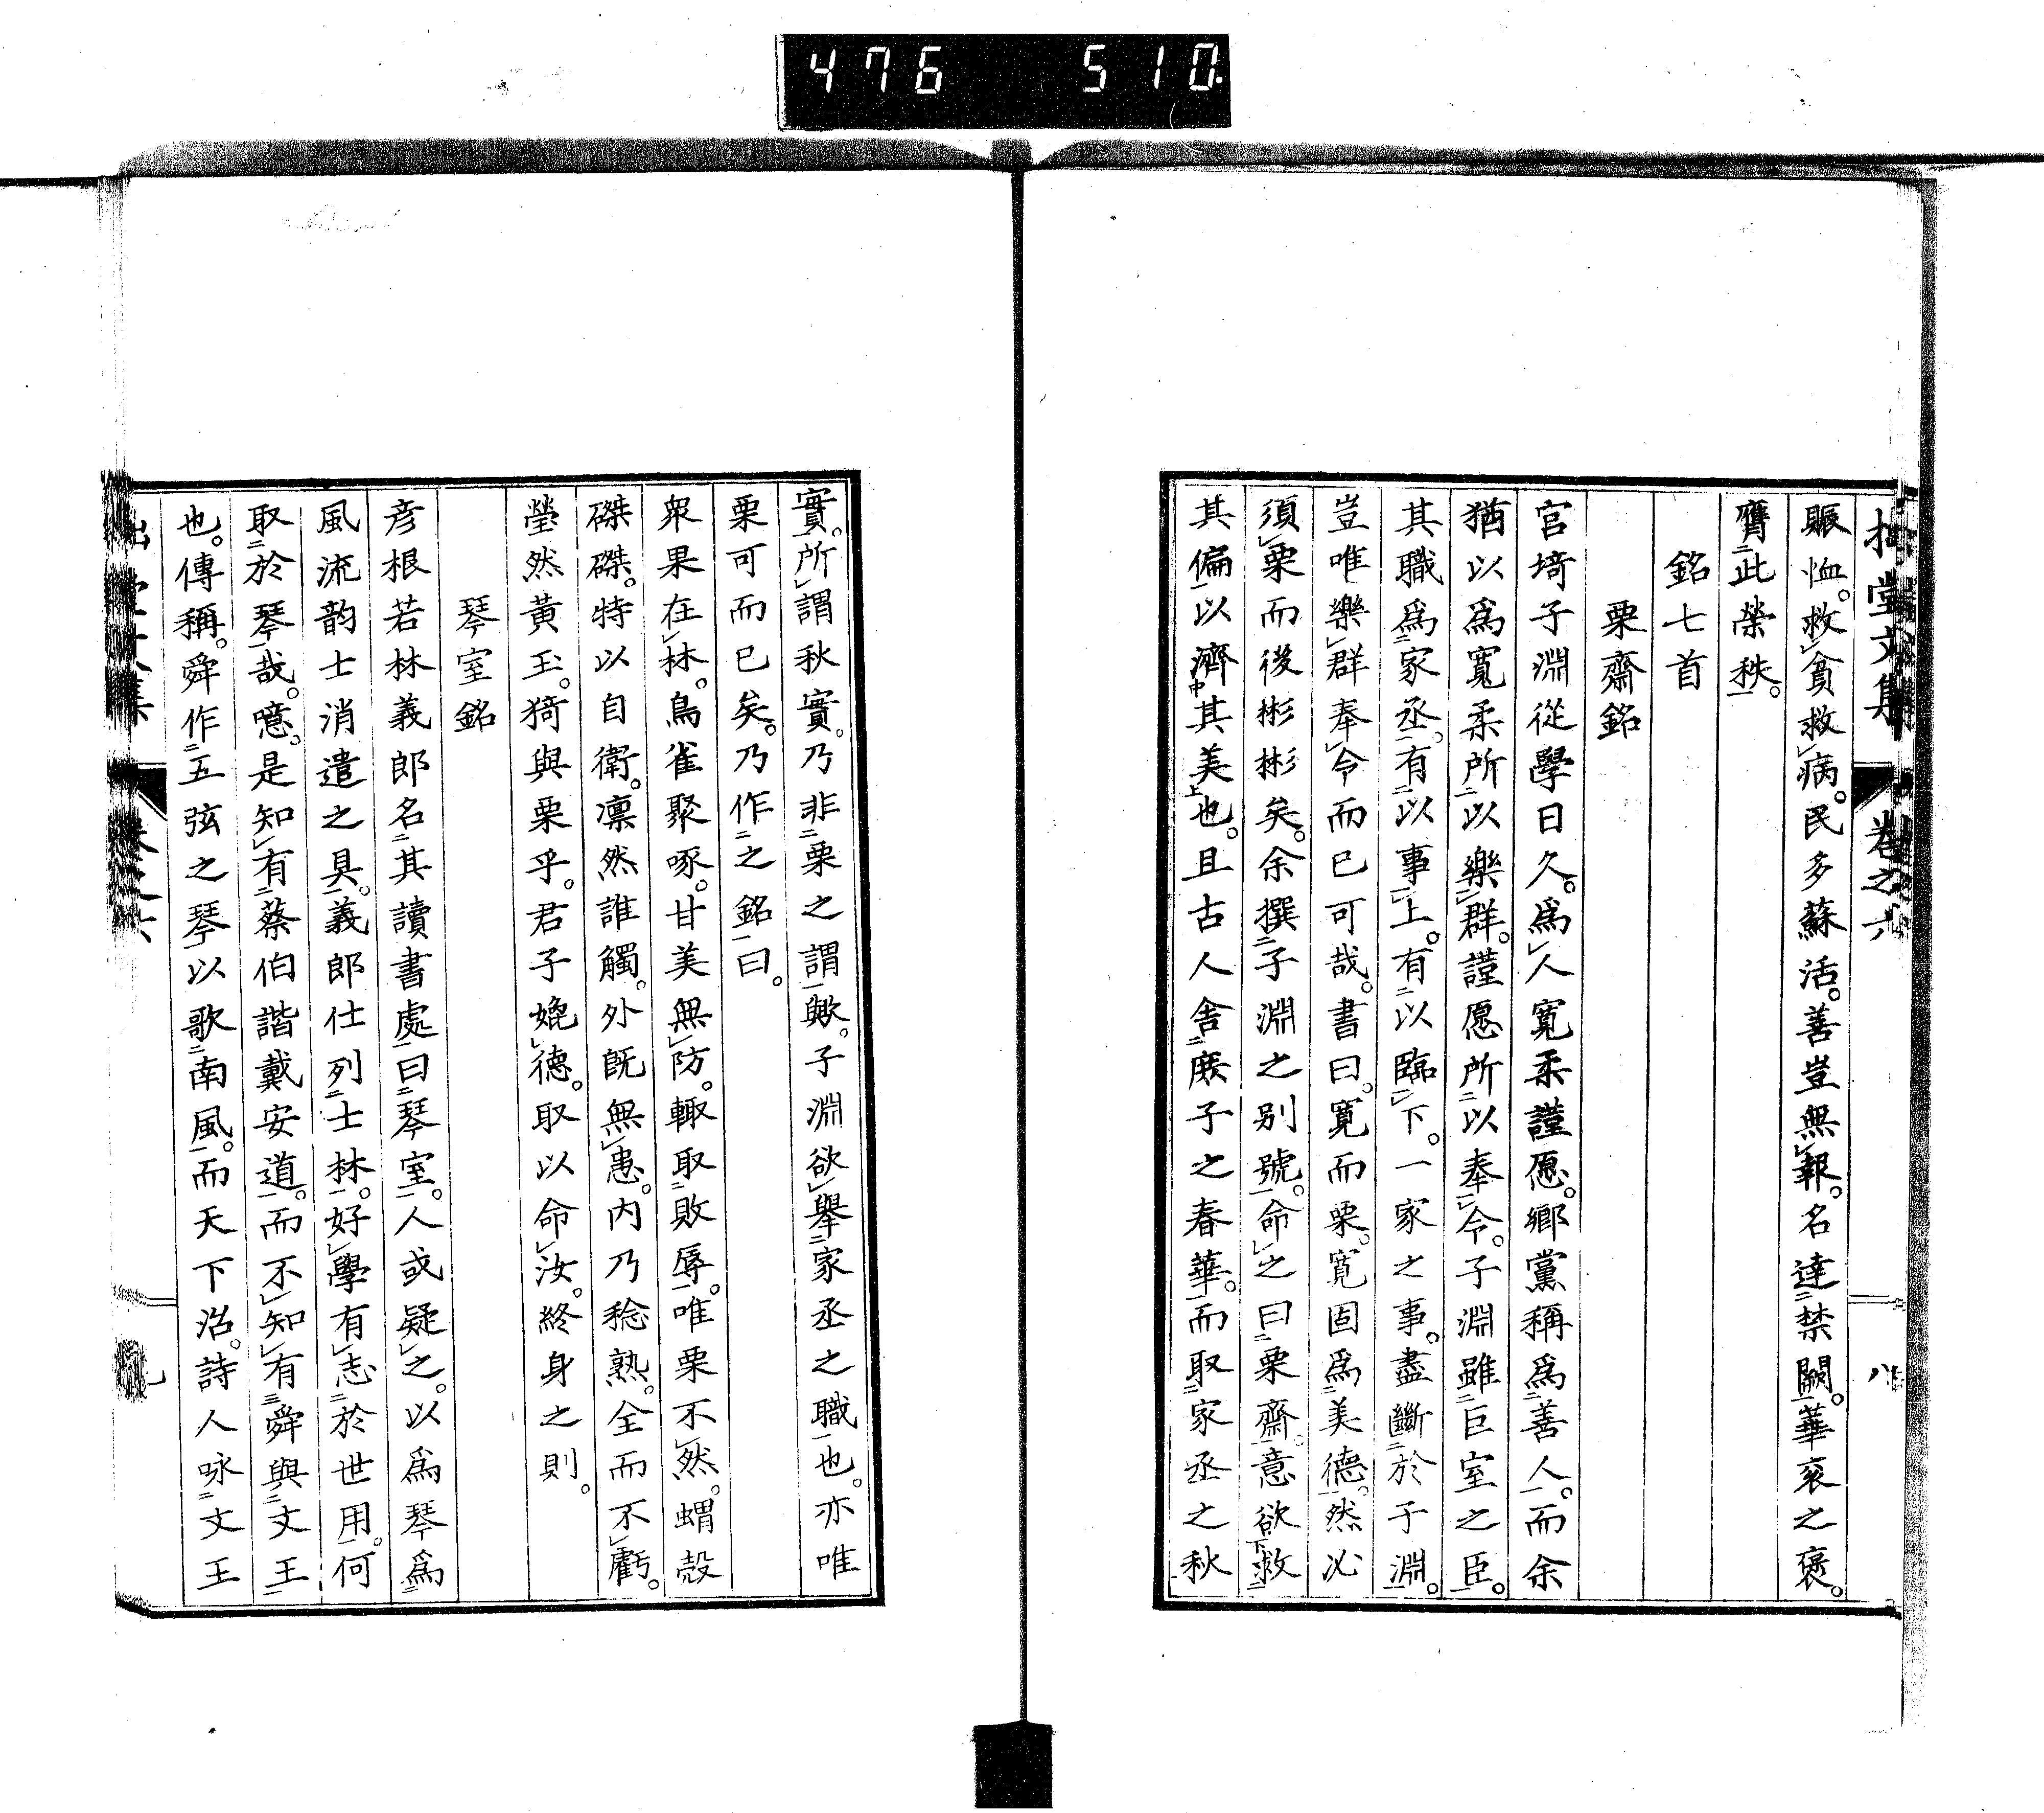 476 510
拙堂文集 卷之六 八
賑恤。救貧救病。民多蘇活。善豈無報。名達禁闕。華袞之褒。
膺此榮秩。
銘七首
栗齋銘
宮埼子淵從學日久。爲人寬柔謹愿。鄉黨稱爲善人。而余
猶以爲寬柔所以樂群。謹愿所以奉令。子淵雖巨室之臣。
其職爲家丞。有以事上。有以臨下。一家之事。盡斷於子淵。
豈唯樂群奉令而已可哉。書曰。寬而栗。寬固爲美德。然必
須栗而後彬彬矣。余撰子淵之別號。命之曰栗齋。意欲救
其偏以濟其美也。且古人舍庶子之春華。而取家丞之秋
實。所謂秋實。乃非栗之謂歟。子淵欲舉家丞之職也。亦唯
栗可而已矣。乃作之銘曰。
衆果在林。鳥雀聚啄。甘美無防。輙取敗辱。唯栗不然。蝟殼
磔磔。特以自衛。凛然誰觸。外既無患。内乃稔熟。全而不虧。
瑩然黃玉。猗與栗乎。君子媲德。取以命汝。終身之則。
琴室銘
彦根若林義郎名其讀書處曰琴室。人或疑之。以爲琴爲
風流韵士消遣之具。義郎仕列士林。好學有志於世用。何
取於琴哉。噫。是知有蔡伯諧戴安道。而不知有舜與文王
也。傳稱。舜作五弦之琴以歌南風。而天下治。詩人咏文王